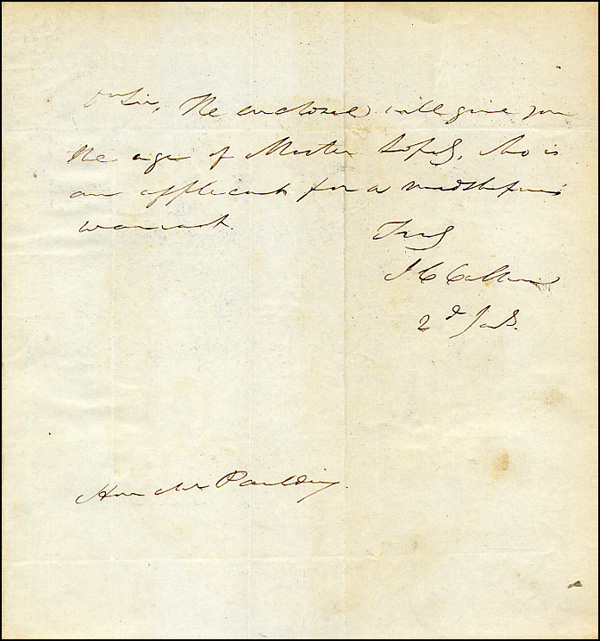 Dr Sir, The enclosed will give you
the age of Master who is
an applicant for a midshipmans
warrant.
Truly
J C Calhoun
2d Jany.
Hon Mr Paulding.